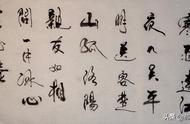 寒雨連江
夜入吳平
明送客楚
山孤洛陽
親友如相
問一片冰心